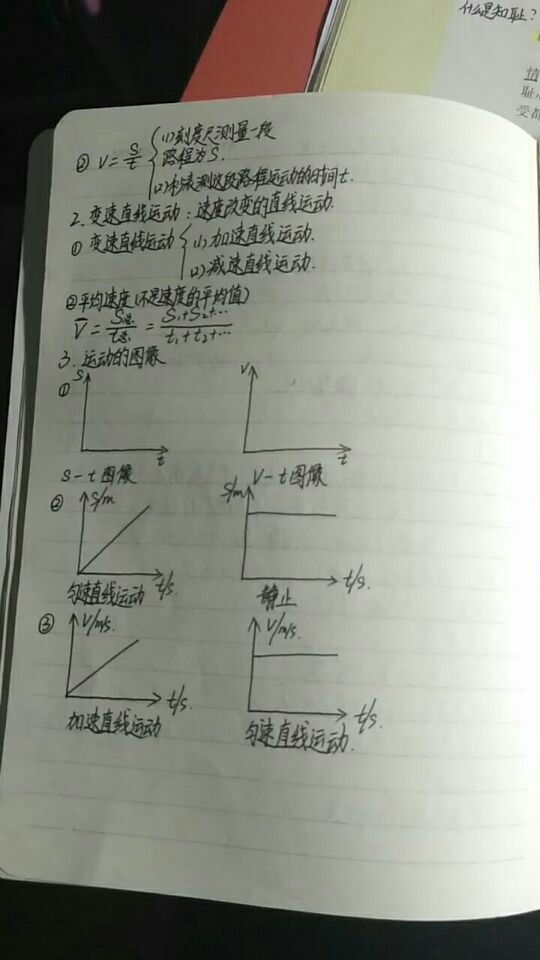 什么是知耻?
② V = S/t { (1)刻度尺测量一段
路程为S.
(2)秒表测这段路程运动的时间t.
2. 变速直线运动：速度改变的直线运动.
① 变速直线运动 { (1)加速直线运动.
(2)减速直线运动.
②平均速度(不是速度的平均值)
V̄ = S总/t总 = S₁+S₂+…/t₁+t₂+…
3. 运动的图像
① S t V t
S-t图像 V-t图像
② S/m t/s. S/m t/s.
匀速直线运动 静止
③ V/m/s. t/s. V/m/s. t/s.
加速直线运动 匀速直线运动.